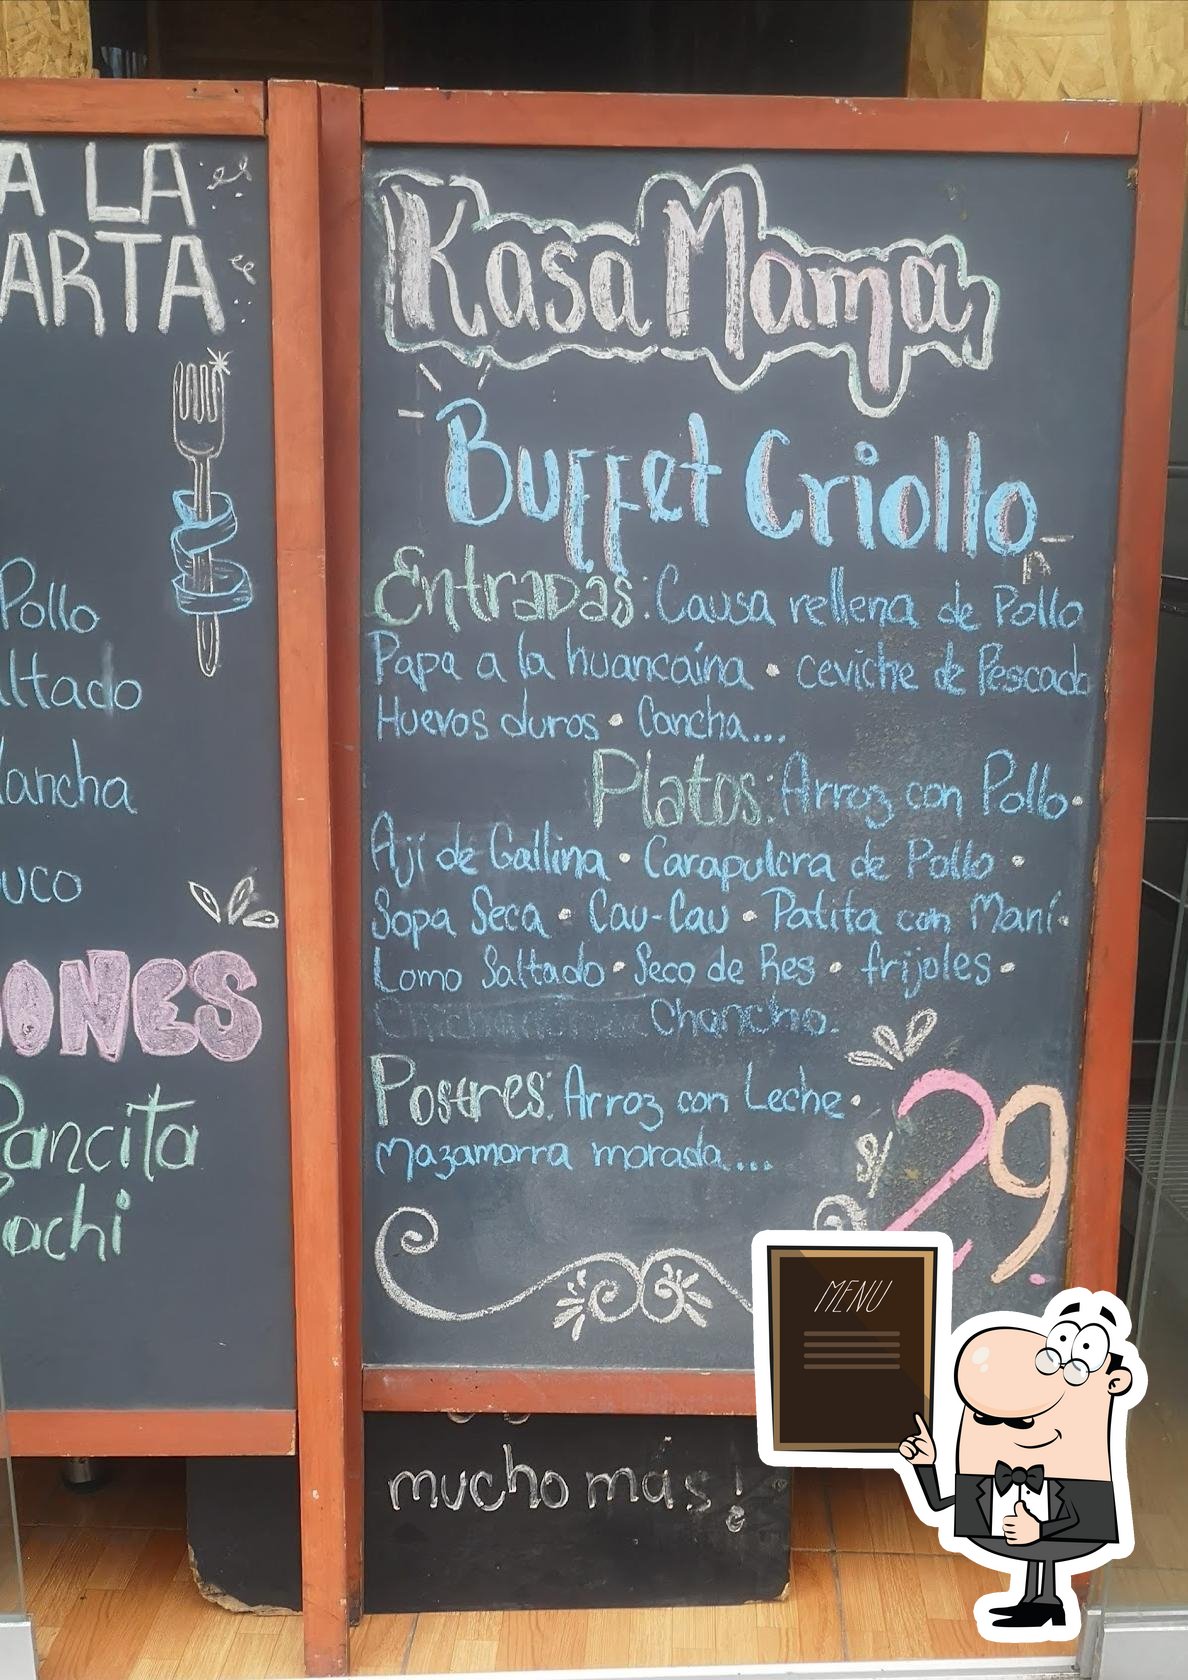 A LA
ARTA
Pollo
altado
Mancha
uco
ONES
Pancita
achi
Kasa Mama
Buffet Criollo
Entradas: Causa rellena de Pollo
Papa a la huancaína • ceviche de Pescado
Huevos duros • Cancha...
Platos: Arroz con Pollo •
Ají de Gallina • Carapulcra de Pollo •
Sopa Seca • Cau-Cau • Patita con Maní •
Lomo Saltado • Seco de Res • frijoles •
Chancho.
Postres: Arroz con Leche •
Mazamorra morada...
S/ 29.
mucho más!
MENU